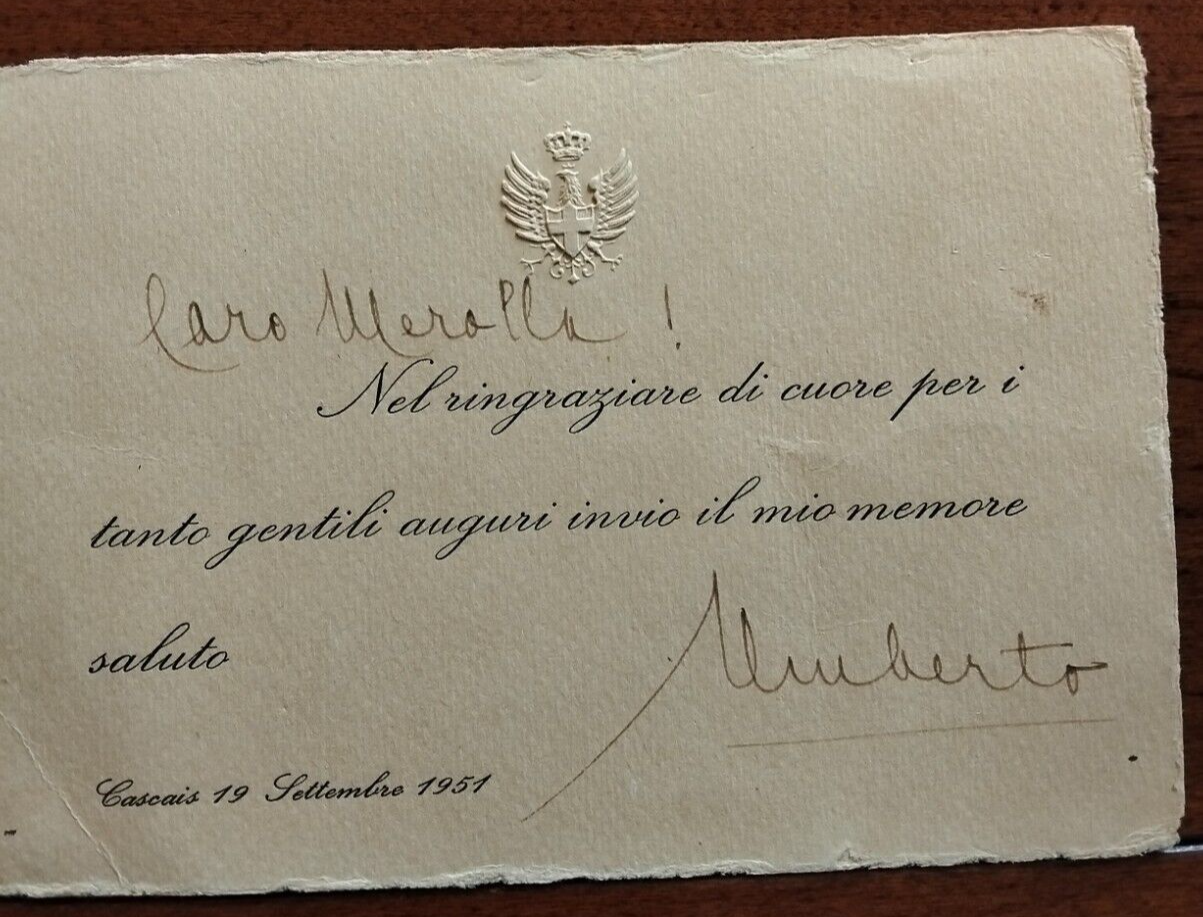 Caro Merolla !
Nel ringraziare di cuore per i
tanto gentili auguri invio il mio memore
saluto
Umberto
Cascais 19 Settembre 1951